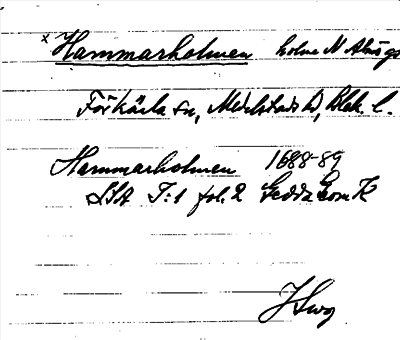 x Hammarholmen holme N Almö gs
Förkärla sn, Medelstads hd, Blek. l.
Hammarholmen 1688-89
LSA T:1 fol. 2 Gedda Geom K